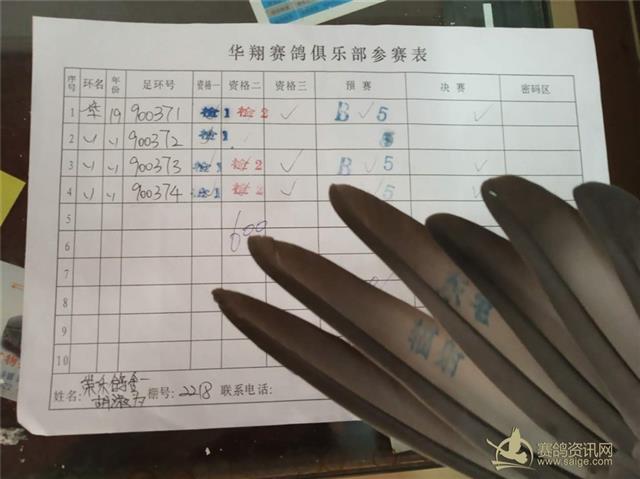 华翔赛鸽俱乐部参赛表
序号 环名 年份 足环号 资格一 资格二 资格三 预赛 决赛 密码区
1 华 19 900371 检1 检2 ✓ B ✓ 5 ✓
2 〃 〃 900372 检1
3 〃 〃 900373 检1 检2 ✓ B ✓ 5 ✓
4 〃 〃 900374 检1 检2 ✓ ✓ 5 ✓
5
6 600
7
8
9
10
姓名: 棚号: 2218 联系电话:
赛鸽资讯网
www.saige.com